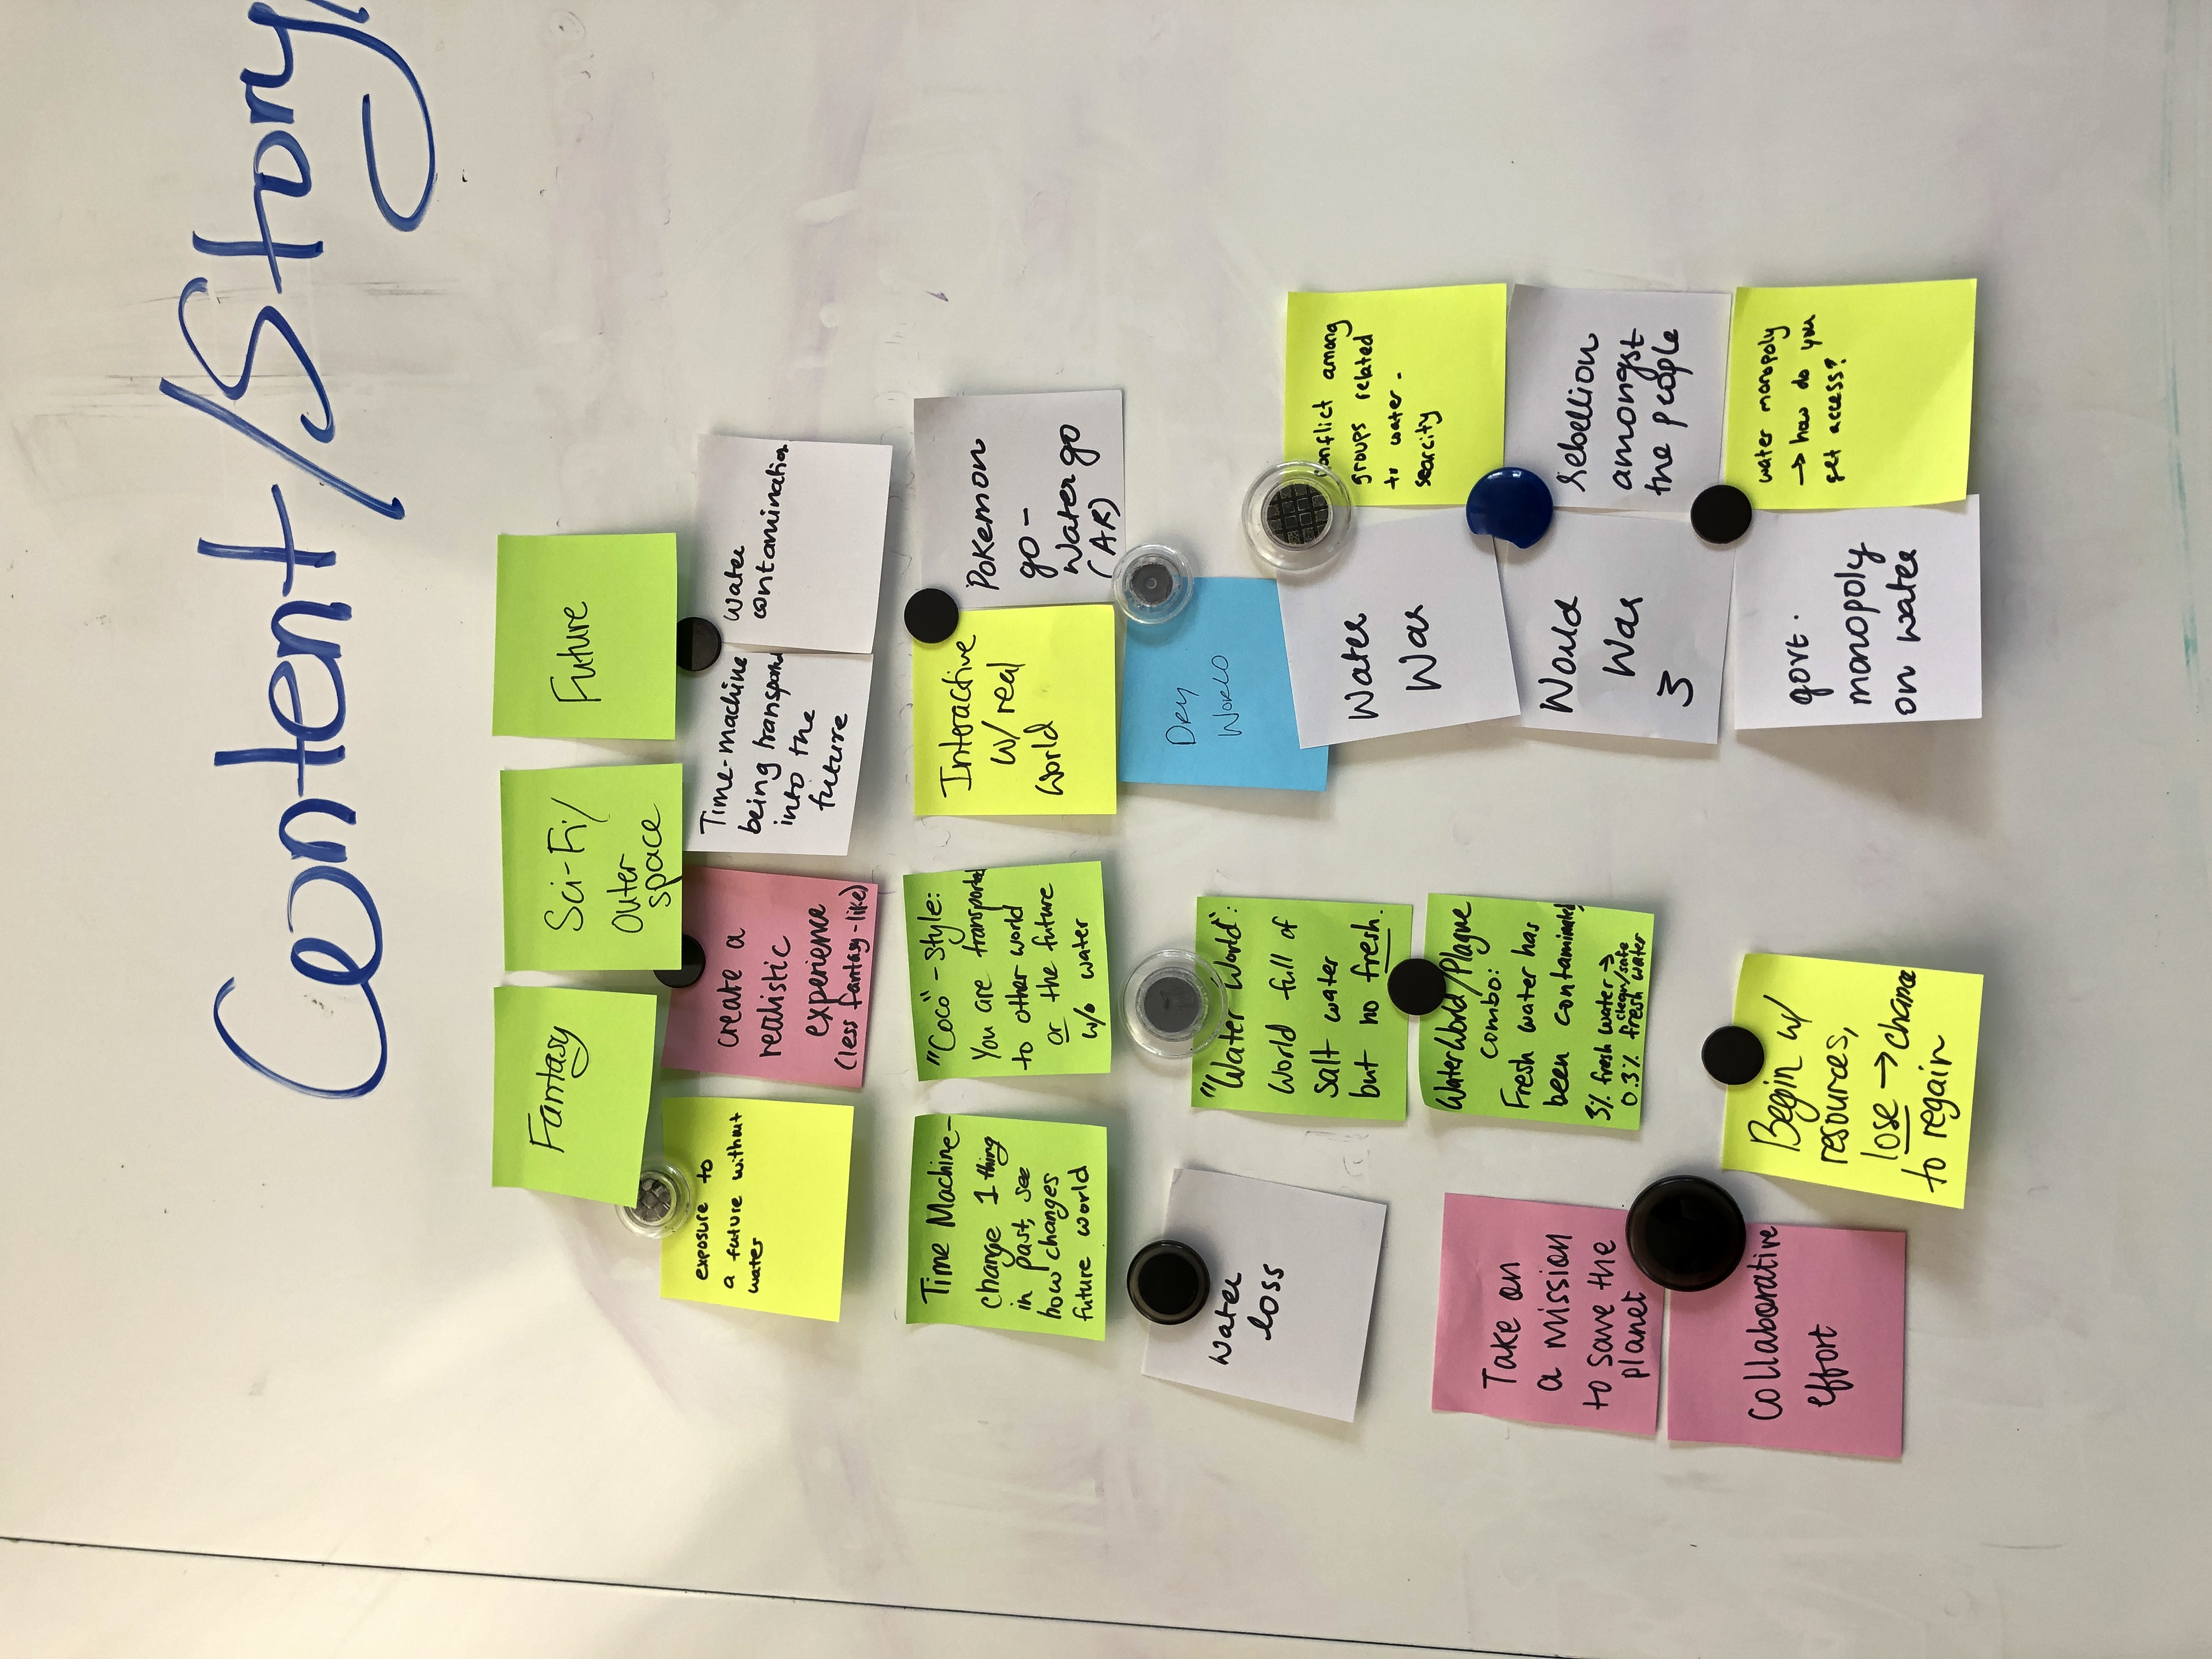 Content/Story/
Fantasy
Sci-Fi/
Outer
space
Future
exposure to
a future without
water
create a
realistic
experience
(less fantasy-like)
Time-machine
being transported
into the
future
water
contamination
Time Machine-
change 1 thing
in past, see
how changes
future world
"Coco"-style:
You are transported
to other world
or the future
w/o water
Interactive
w/ real
world
Pokemon
go-
Water go
(AR)
Dry
World
Water
loss
"Water World":
World full of
salt water
but no fresh.
Water
War
conflict among
groups related
to water-
scarcity
Take on
a mission
to save the
planet
WaterWorld/Plague
combo:
Fresh water has
been contaminated,
3% fresh water →
clean/safe
0.3% fresh water
World
War
3
rebellion
amongst
the people
Collaborative
effort
Begin w/
resources,
lose → chance
to regain
govt.
monopoly
on water
water monopoly
→ how do you
get access?